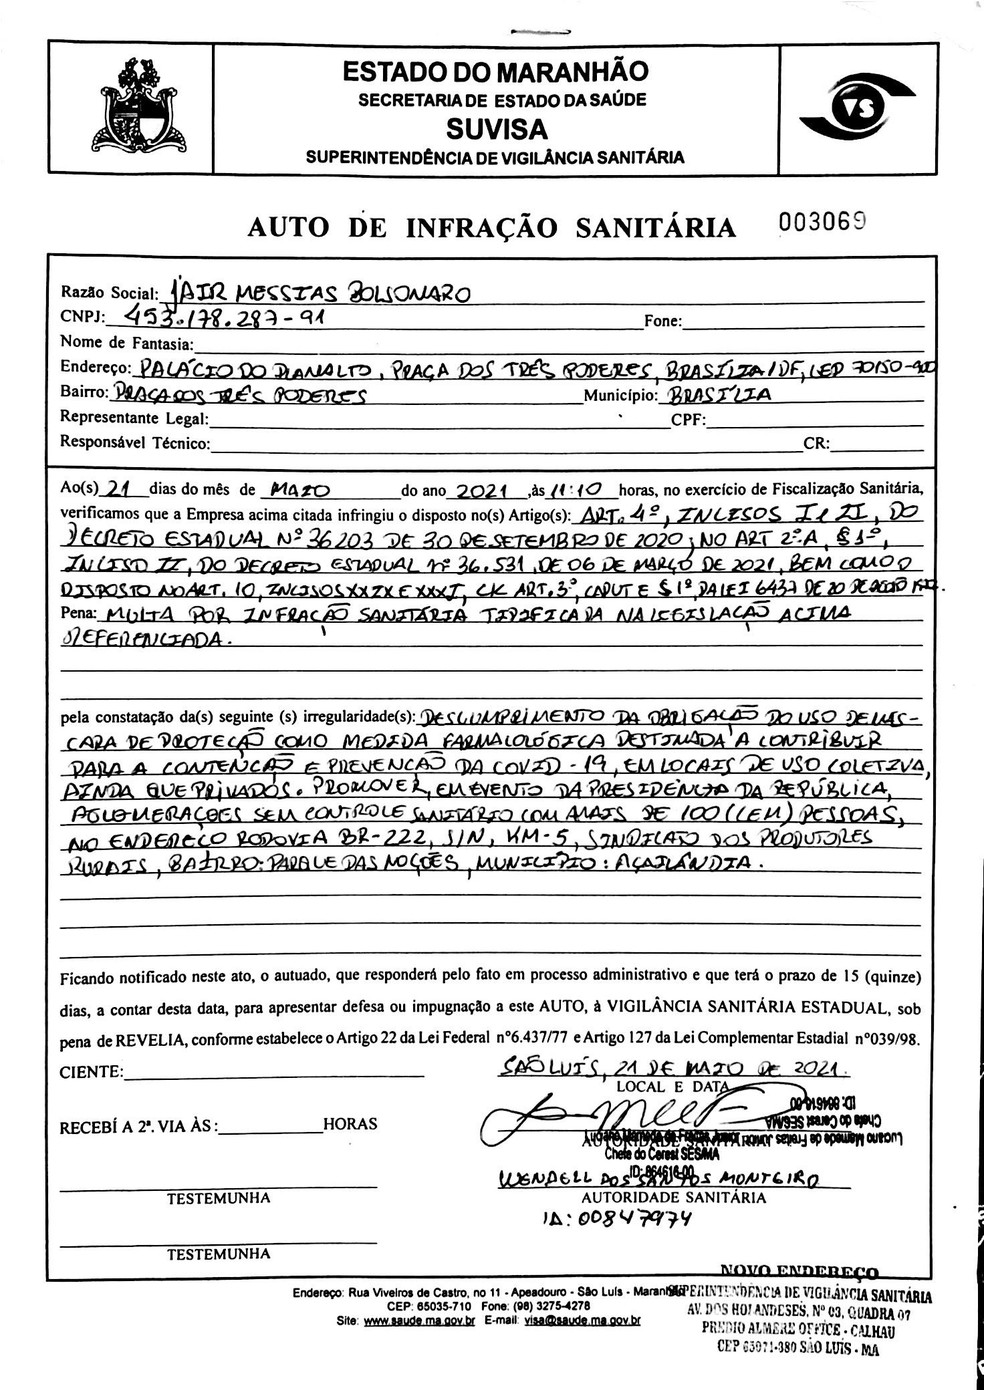 ESTADO DO MARANHÃO
SECRETARIA DE ESTADO DA SAÚDE
SUVISA
SUPERINTENDÊNCIA DE VIGILÂNCIA SANITÁRIA
VS
AUTO DE INFRAÇÃO SANITÁRIA 003069
Razão Social: JAIR MESSIAS BOLSONARO
CNPJ: 453.178.287-91 Fone:
Nome de Fantasia:
Endereço: PALÁCIO DO PLANALTO, PRAÇA DOS TRÊS PODERES, BRASÍLIA/DF, CEP 70150-900
Bairro: PRAÇA DOS TRÊS PODERES Município: BRASÍLIA
Representante Legal: CPF:
Responsável Técnico: CR:
Ao(s) 21 dias do mês de MAIO do ano 2021 ,às 11:10 horas, no exercício de Fiscalização Sanitária,
verificamos que a Empresa acima citada infringiu o disposto no(s) Artigo(s): ART. 4º, INCISOS I e II, DO
DECRETO ESTADUAL Nº 36203 DE 30 DE SETEMBRO DE 2020; NO ART 2º-A, § 1º,
INCISO II, DO DECRETO ESTADUAL Nº 36.531, DE 06 DE MARÇO DE 2021, BEM COMO O
DISPOSTO NO ART. 10, INCISOS XXIX E XXXI, C/C ART. 3º, CAPUT E § 1º, DA LEI 6437 DE 20 DE AGOSTO 1977.
Pena: MULTA POR INFRAÇÃO SANITÁRIA TIPIFICADA NA LEGISLAÇÃO ACIMA
REFERENCIADA.
pela constatação da(s) seguinte (s) irregularidade(s): DESCUMPRIMENTO DA OBRIGAÇÃO DO USO DE MÁS-
CARA DE PROTEÇÃO COMO MEDIDA FARMACOLÓGICA DESTINADA A CONTRIBUIR
PARA A CONTENÇÃO E PREVENÇÃO DA COVID-19, EM LOCAIS DE USO COLETIVA,
AINDA QUE PRIVADOS. PROMOVER, EM EVENTO DA PRESIDÊNCIA DA REPÚBLICA,
AGLOMERAÇÕES SEM CONTROLE SANITÁRIO COM MAIS DE 100 (CEM) PESSOAS,
NO ENDEREÇO RODOVIA BR-222, S/N, KM-5, SINDICATO DOS PRODUTORES
RURAIS, BAIRRO: PARQUE DAS NAÇÕES, MUNICÍPIO: AÇAILÂNDIA.
Ficando notificado neste ato, o autuado, que responderá pelo fato em processo administrativo e que terá o prazo de 15 (quinze)
dias, a contar desta data, para apresentar defesa ou impugnação a este AUTO, à VIGILÂNCIA SANITÁRIA ESTADUAL, sob
pena de REVELIA, conforme estabelece o Artigo 22 da Lei Federal nº6.437/77 e Artigo 127 da Lei Complementar Estadial nº039/98.
CIENTE: SÃO LUÍS, 21 DE MAIO DE 2021.
LOCAL E DATA
ID: 864616-00
Chefe do Cerest SES/MA
Luciano Mamede de Freitas Junior
RECEBÍ A 2ª. VIA ÀS: HORAS
AUTORIDADE SANITÁRIA
Luciano Mamede de Freitas Junior
Chefe do Cerest SES/MA
ID: 864616-00
WENDELL DOS SANTOS MONTEIRO
TESTEMUNHA AUTORIDADE SANITÁRIA
ID: 00847974
TESTEMUNHA
Endereço: Rua Viveiros de Castro, no 11 - Apeadouro - São Luís - Maranhão
CEP: 65035-710 Fone: (98) 3275-4278
Site: www.saude.ma.gov.br E-mail: visa@saude.ma.gov.br
NOVO ENDEREÇO
SUPERINTENDÊNCIA DE VIGILÂNCIA SANITÁRIA
AV. DOS HOLANDESES, Nº 03, QUADRA 07
PRÉDIO ALMERE OFFICE - CALHAU
CEP 65071-380 SÃO LUÍS - MA